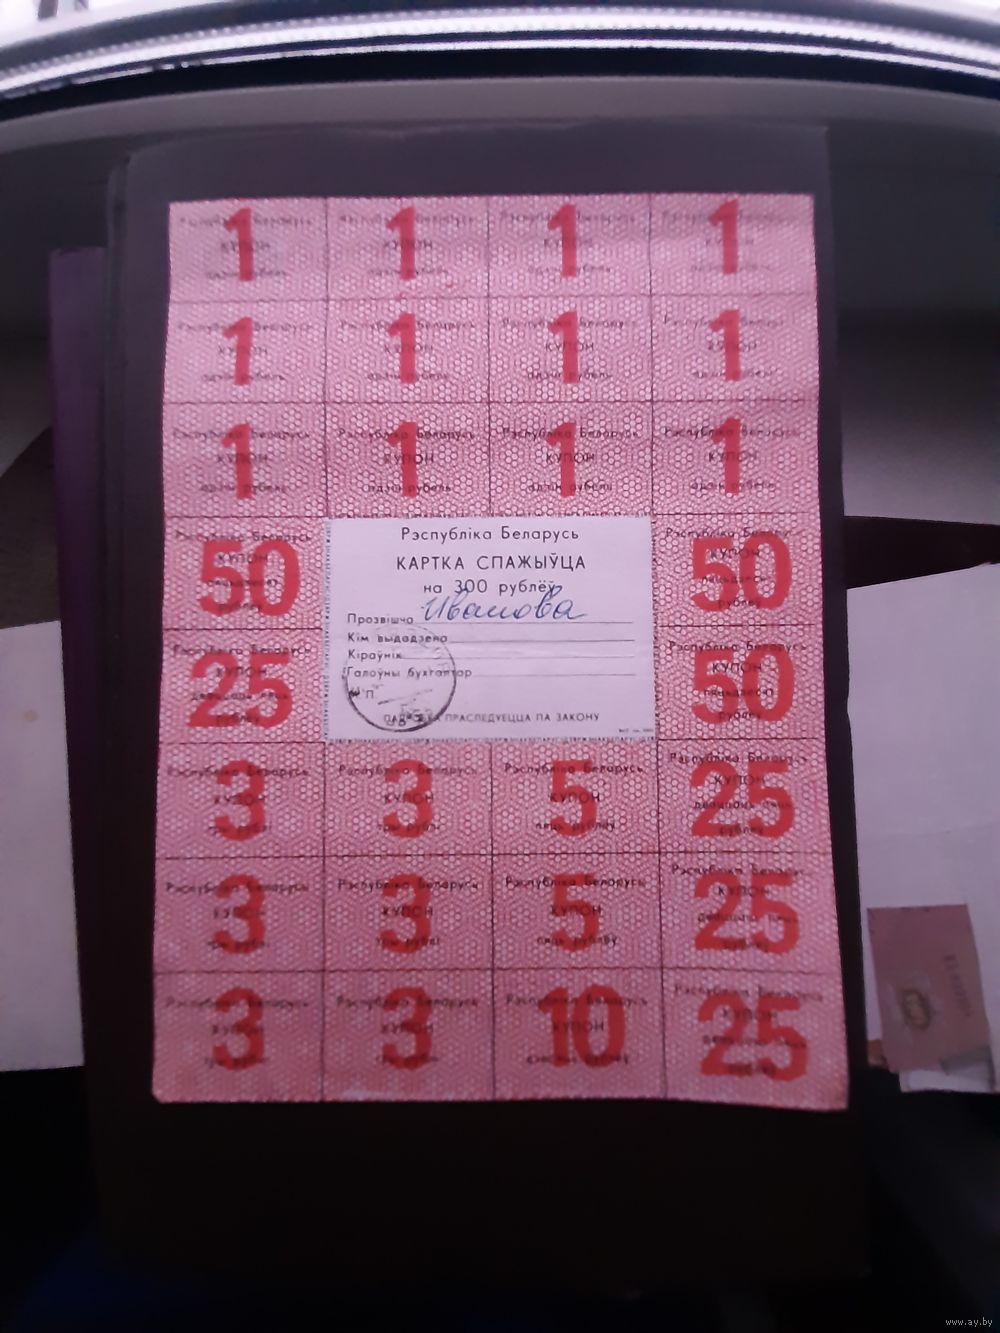 Рэспубліка Беларусь Рэспубліка Беларусь Рэспубліка Беларусь Рэспубліка Беларусь
КУПОН КУПОН КУПОН КУПОН
1 1 1 1
адзін рубель адзін рубель адзін рубель адзін рубель
Рэспубліка Беларусь Рэспубліка Беларусь Рэспубліка Беларусь Рэспубліка Беларусь
КУПОН КУПОН КУПОН КУПОН
1 1 1 1
адзін рубель адзін рубель адзін рубель адзін рубель
Рэспубліка Беларусь Рэспубліка Беларусь Рэспубліка Беларусь Рэспубліка Беларусь
КУПОН КУПОН КУПОН КУПОН
1 1 1 1
адзін рубель адзін рубель адзін рубель адзін рубель
Рэспубліка Беларусь
КУПОН
50
пяцьдзесят
рублёў
Рэспубліка Беларусь
КУПОН
25
дваццаць пяць
рублёў
Рэспубліка Беларусь
КАРТКА СПАЖЫЎЦА
на 300 рублёў
Прозвішча Иванова
Кім выдадзена
Кіраўнік
Галоўны бухгалтар
М.П.
ПАДРОБКА ПРАСЛЕДУЕЦЦА ПА ЗАКОНУ
Рэспубліка Беларусь
КУПОН
50
пяцьдзесят
рублёў
Рэспубліка Беларусь
КУПОН
50
пяцьдзесят
рублёў
Рэспубліка Беларусь Рэспубліка Беларусь Рэспубліка Беларусь Рэспубліка Беларусь
КУПОН КУПОН КУПОН КУПОН
3 3 5 25
тры рублі тры рублі пяць рублёў дваццаць пяць рублёў
Рэспубліка Беларусь Рэспубліка Беларусь Рэспубліка Беларусь Рэспубліка Беларусь
КУПОН КУПОН КУПОН КУПОН
3 3 5 25
тры рублі тры рублі пяць рублёў дваццаць пяць рублёў
Рэспубліка Беларусь Рэспубліка Беларусь Рэспубліка Беларусь Рэспубліка Беларусь
КУПОН КУПОН КУПОН КУПОН
3 3 10 25
тры рублі тры рублі дзесяць рублёў дваццаць пяць рублёў
www.ay.by